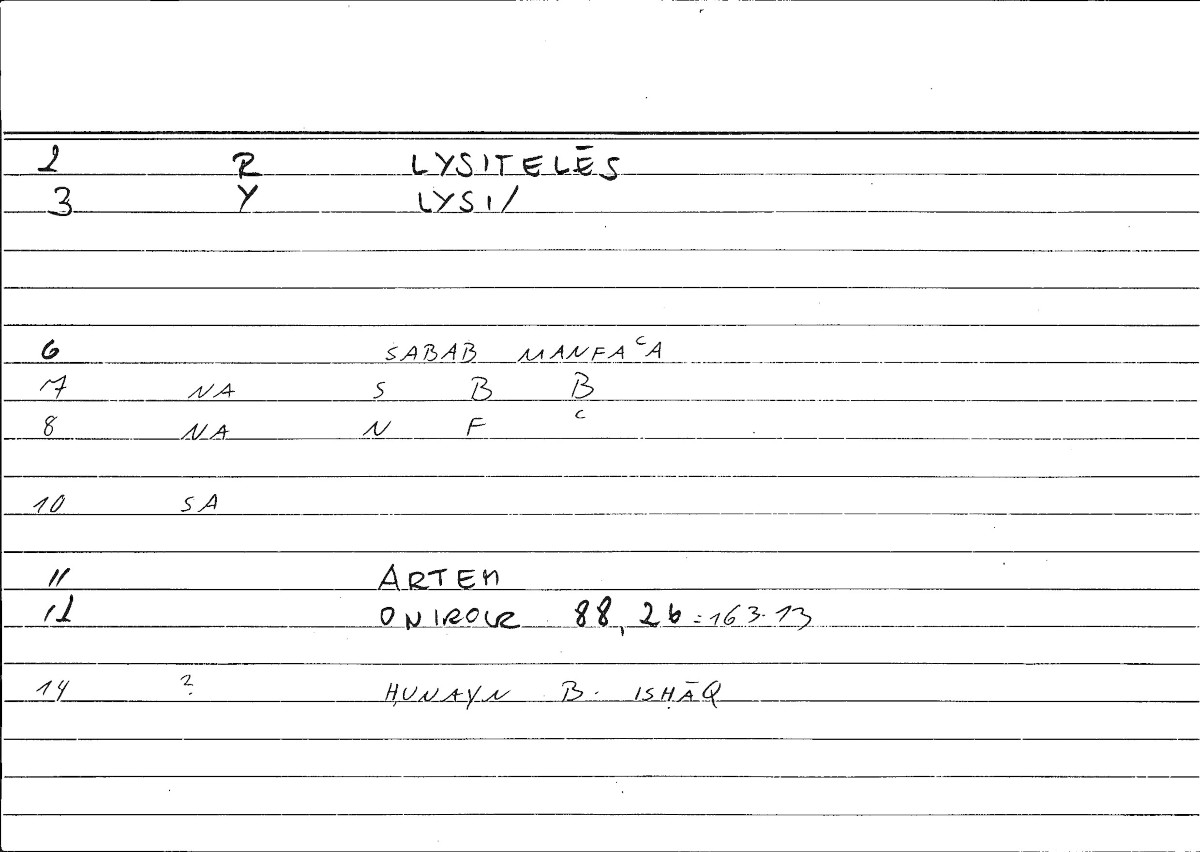 2 R LYSITELĒS
3 Y LYSI/
6 SABAB MANFAᶜA
7 NA S B B
8 NA N F ᶜ
10 SA
11 ARTEM
12 ONIROCR 88,26=163.13
14 ? ḤUNAYN B. ISḤĀQ